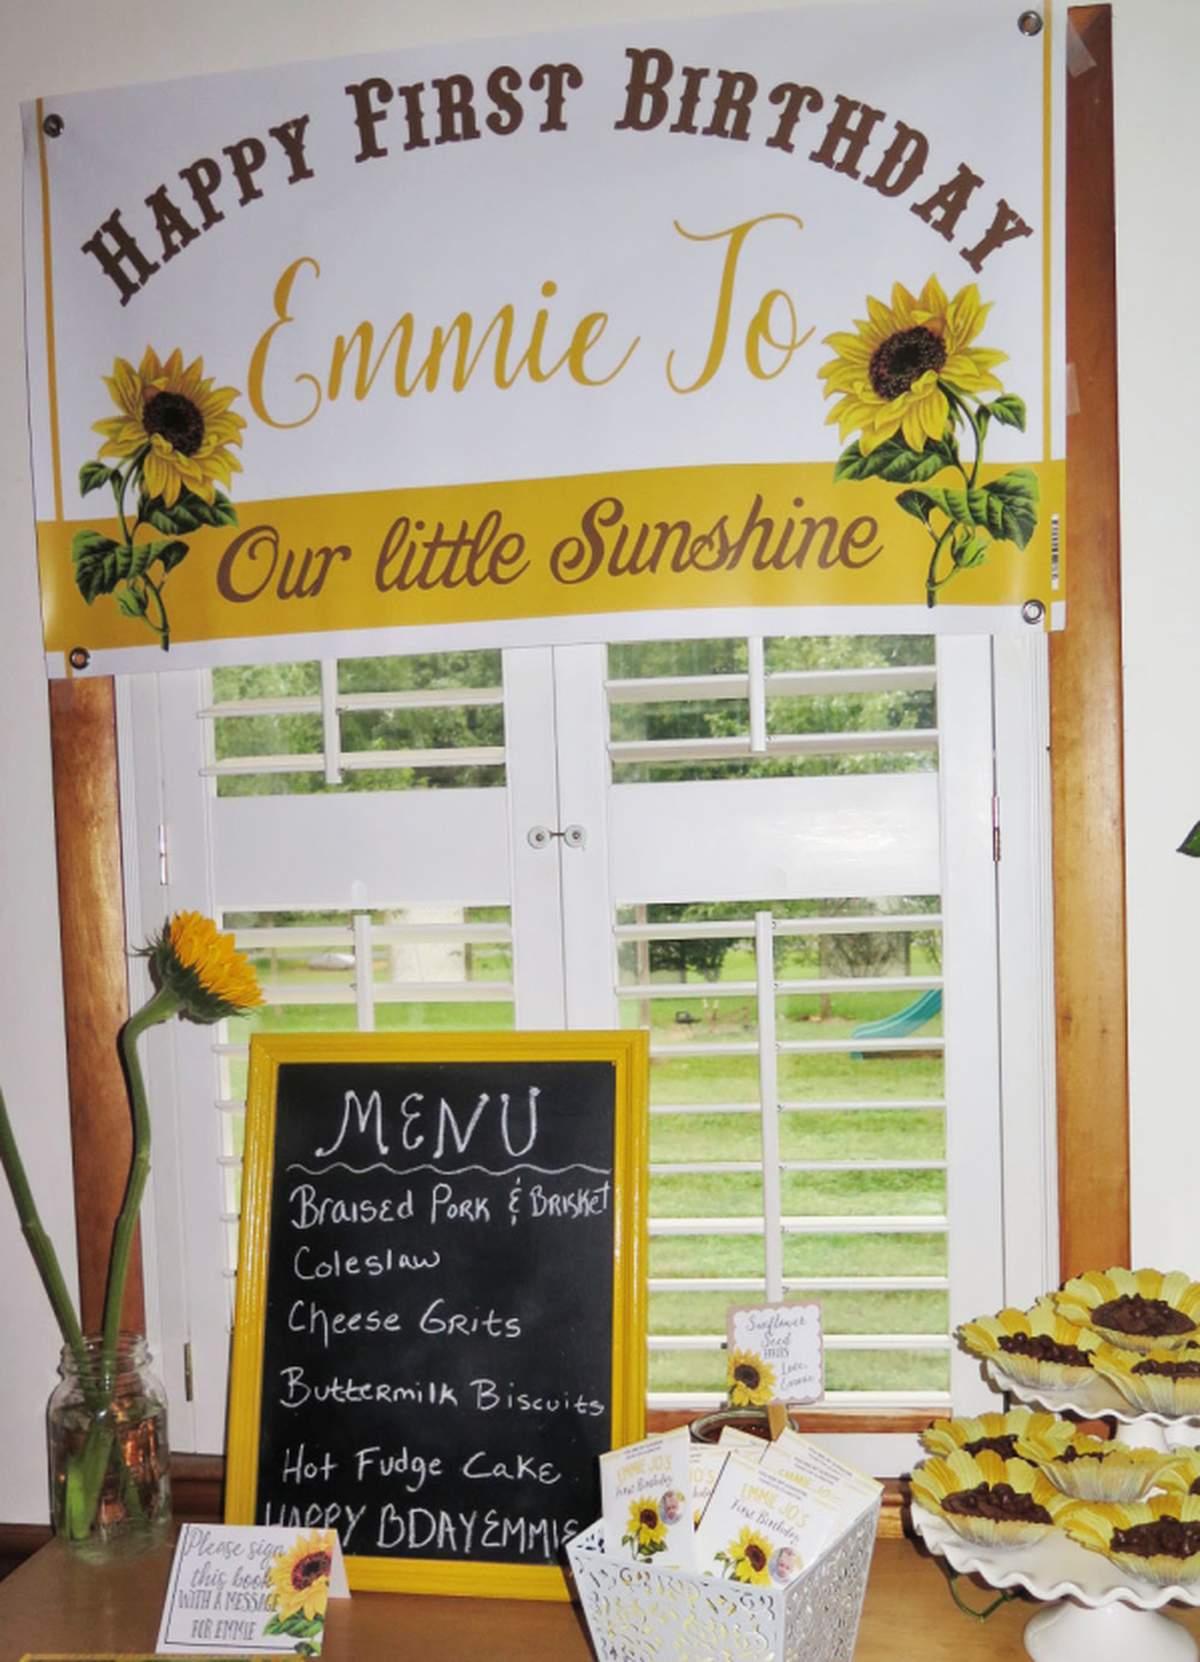 Happy First Birthday
Emmie Jo
Our little Sunshine
MENU
Braised Pork & Brisket
Coleslaw
Cheese Grits
Buttermilk Biscuits
Hot Fudge Cake
HAPPY BDAY EMMIE
Sunflower
Seed
Love,
Emmie
EMMIE JO'S
First Birthday
EMMIE JO'S
First Birthday
Please sign
this book
WITH A MESSAGE
FOR EMMIE